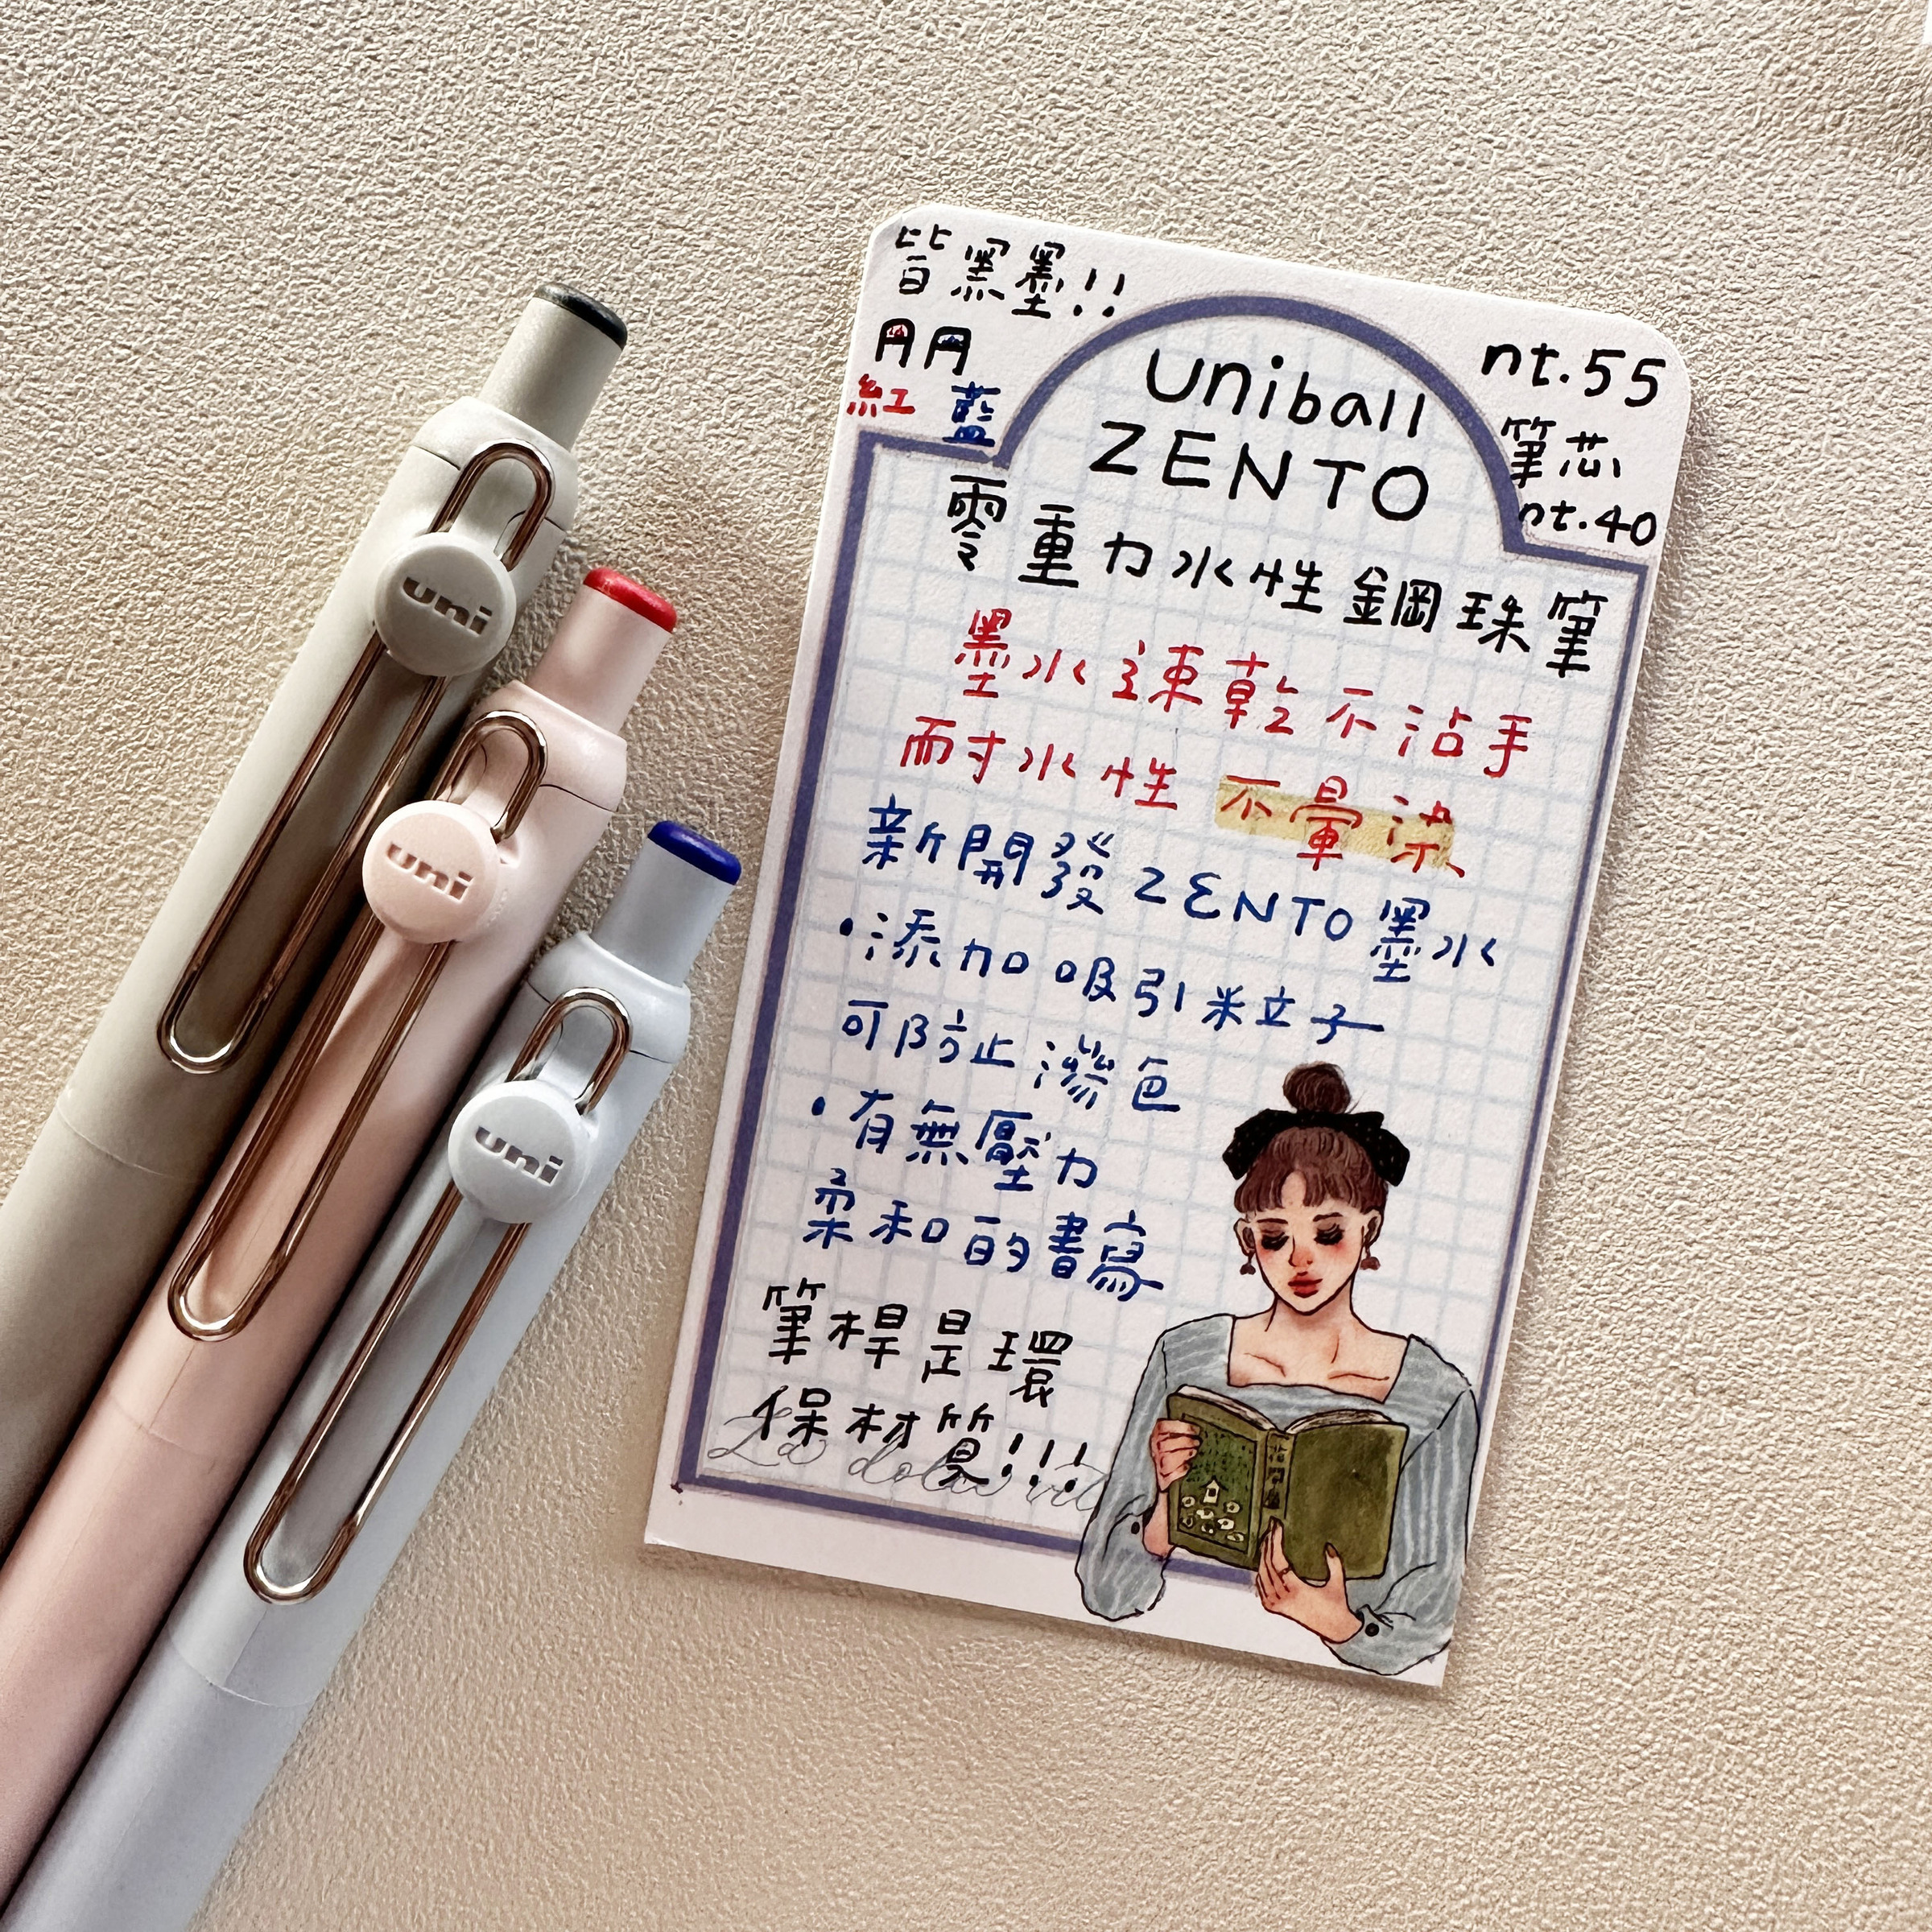 皆黑墨!!
紅 藍
uniball
ZENTO
nt.55
筆芯
nt.40
零重力水性鋼珠筆
墨水速乾不沾手
耐水性 不暈染
新開發ZENTO墨水
•添加吸引粒子
可防止漾色
•有無壓力
柔和的書寫
筆桿是環
保材質!!!
La dolce vita
uni
uni
uni